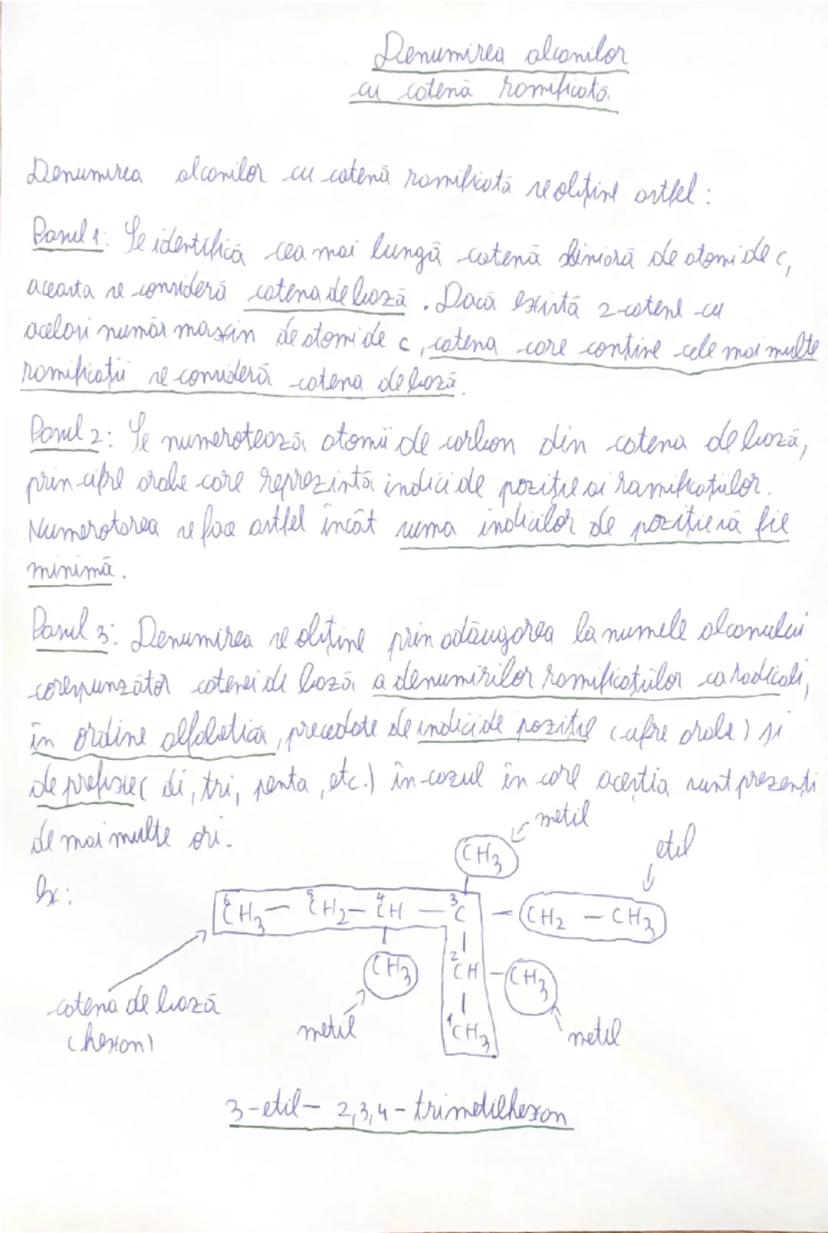 Denumirea alcanilor
cu catenă ramificată.
Denumirea alcanilor cu catenă ramificată se obține astfel:
Pasul 1: Se identifică cea mai lungă catenă liniară de atomi de C,
aceasta se consideră catena de bază. Dacă există 2-catene cu
același număr maxim de atomi de C, catena care conține cele mai multe
ramificații se consideră catena de bază.
Pasul 2: Se numerotează atomii de carbon din catena de bază,
prin cifre arabe care reprezintă indici de poziție ai ramificațiilor.
Numerotarea se face astfel încât suma indicilor de poziție să fie
minimă.
Pasul 3: Denumirea se obține prin adăugarea la numele alcanului
corespunzător catenei de bază, a denumirilor ramificațiilor ca radicali,
în ordine alfabetică, precedate de indici de poziție (cifre arabe) și
de prefixe( di, tri, penta, etc.) în cazul în care aceștia sunt prezenți
de mai multe ori.
metil
etil
Ex:
CH3
6CH3 — 5CH2 — 4CH — 3C — CH2 — CH3
CH3 2CH — CH3
catena de bază
(hexan)
metil 1CH3 metil
3-etil- 2,3,4-trimetilhexan